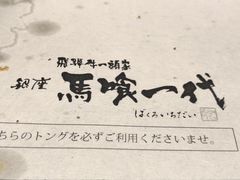 飛騨牛一頭家
銀座
馬喰一代
ばくろいちだい
ちらのトングを必ずご利用くださいませ。